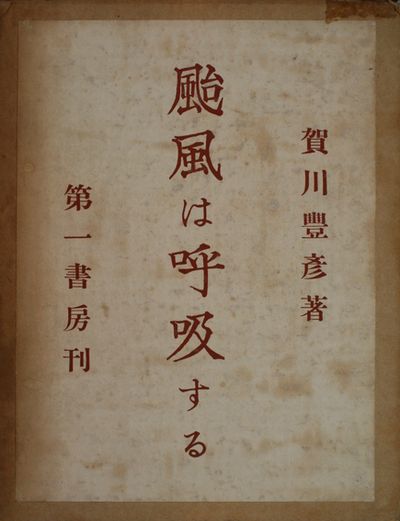 賀川豐彦著
颱風は呼吸する
第一書房刊